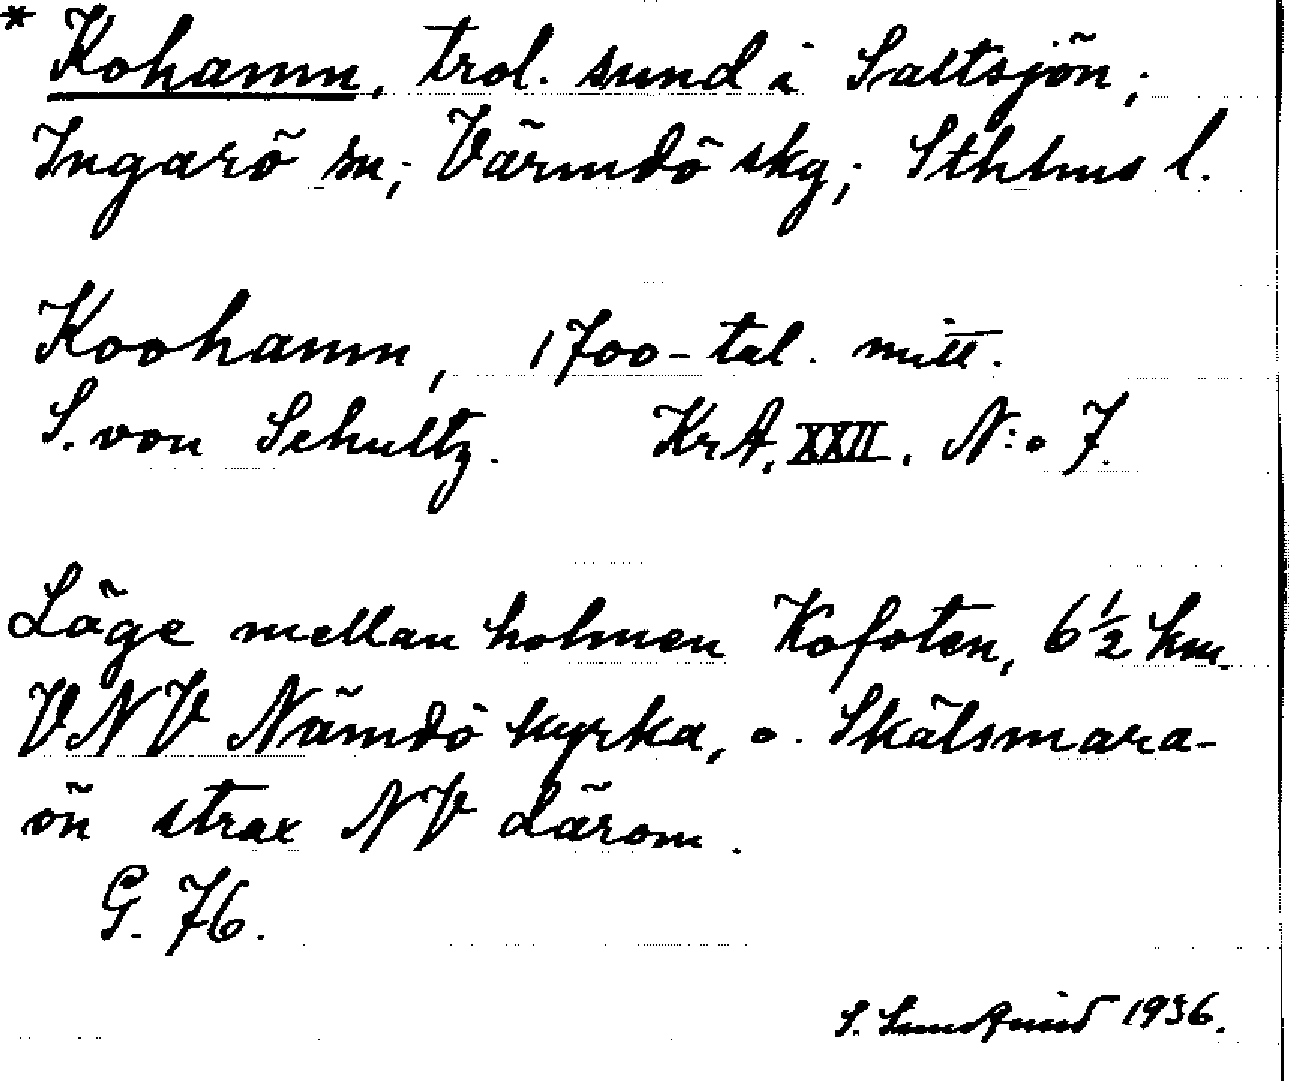 * Kohamn, trol. sund i Saltsjön;
Ingarö sn; Värmdö skg; Sthlms l.
Koohamn, 1700-tal. mitt.
S. von Schultz. KrA. XXII. N:o 7.
Läge mellan holmen Kofoten, 6 ½ km
VNV Nämdö kyrka, o. Skälsmara-
ön strax NV därom.
G. 76.
S. 1936.